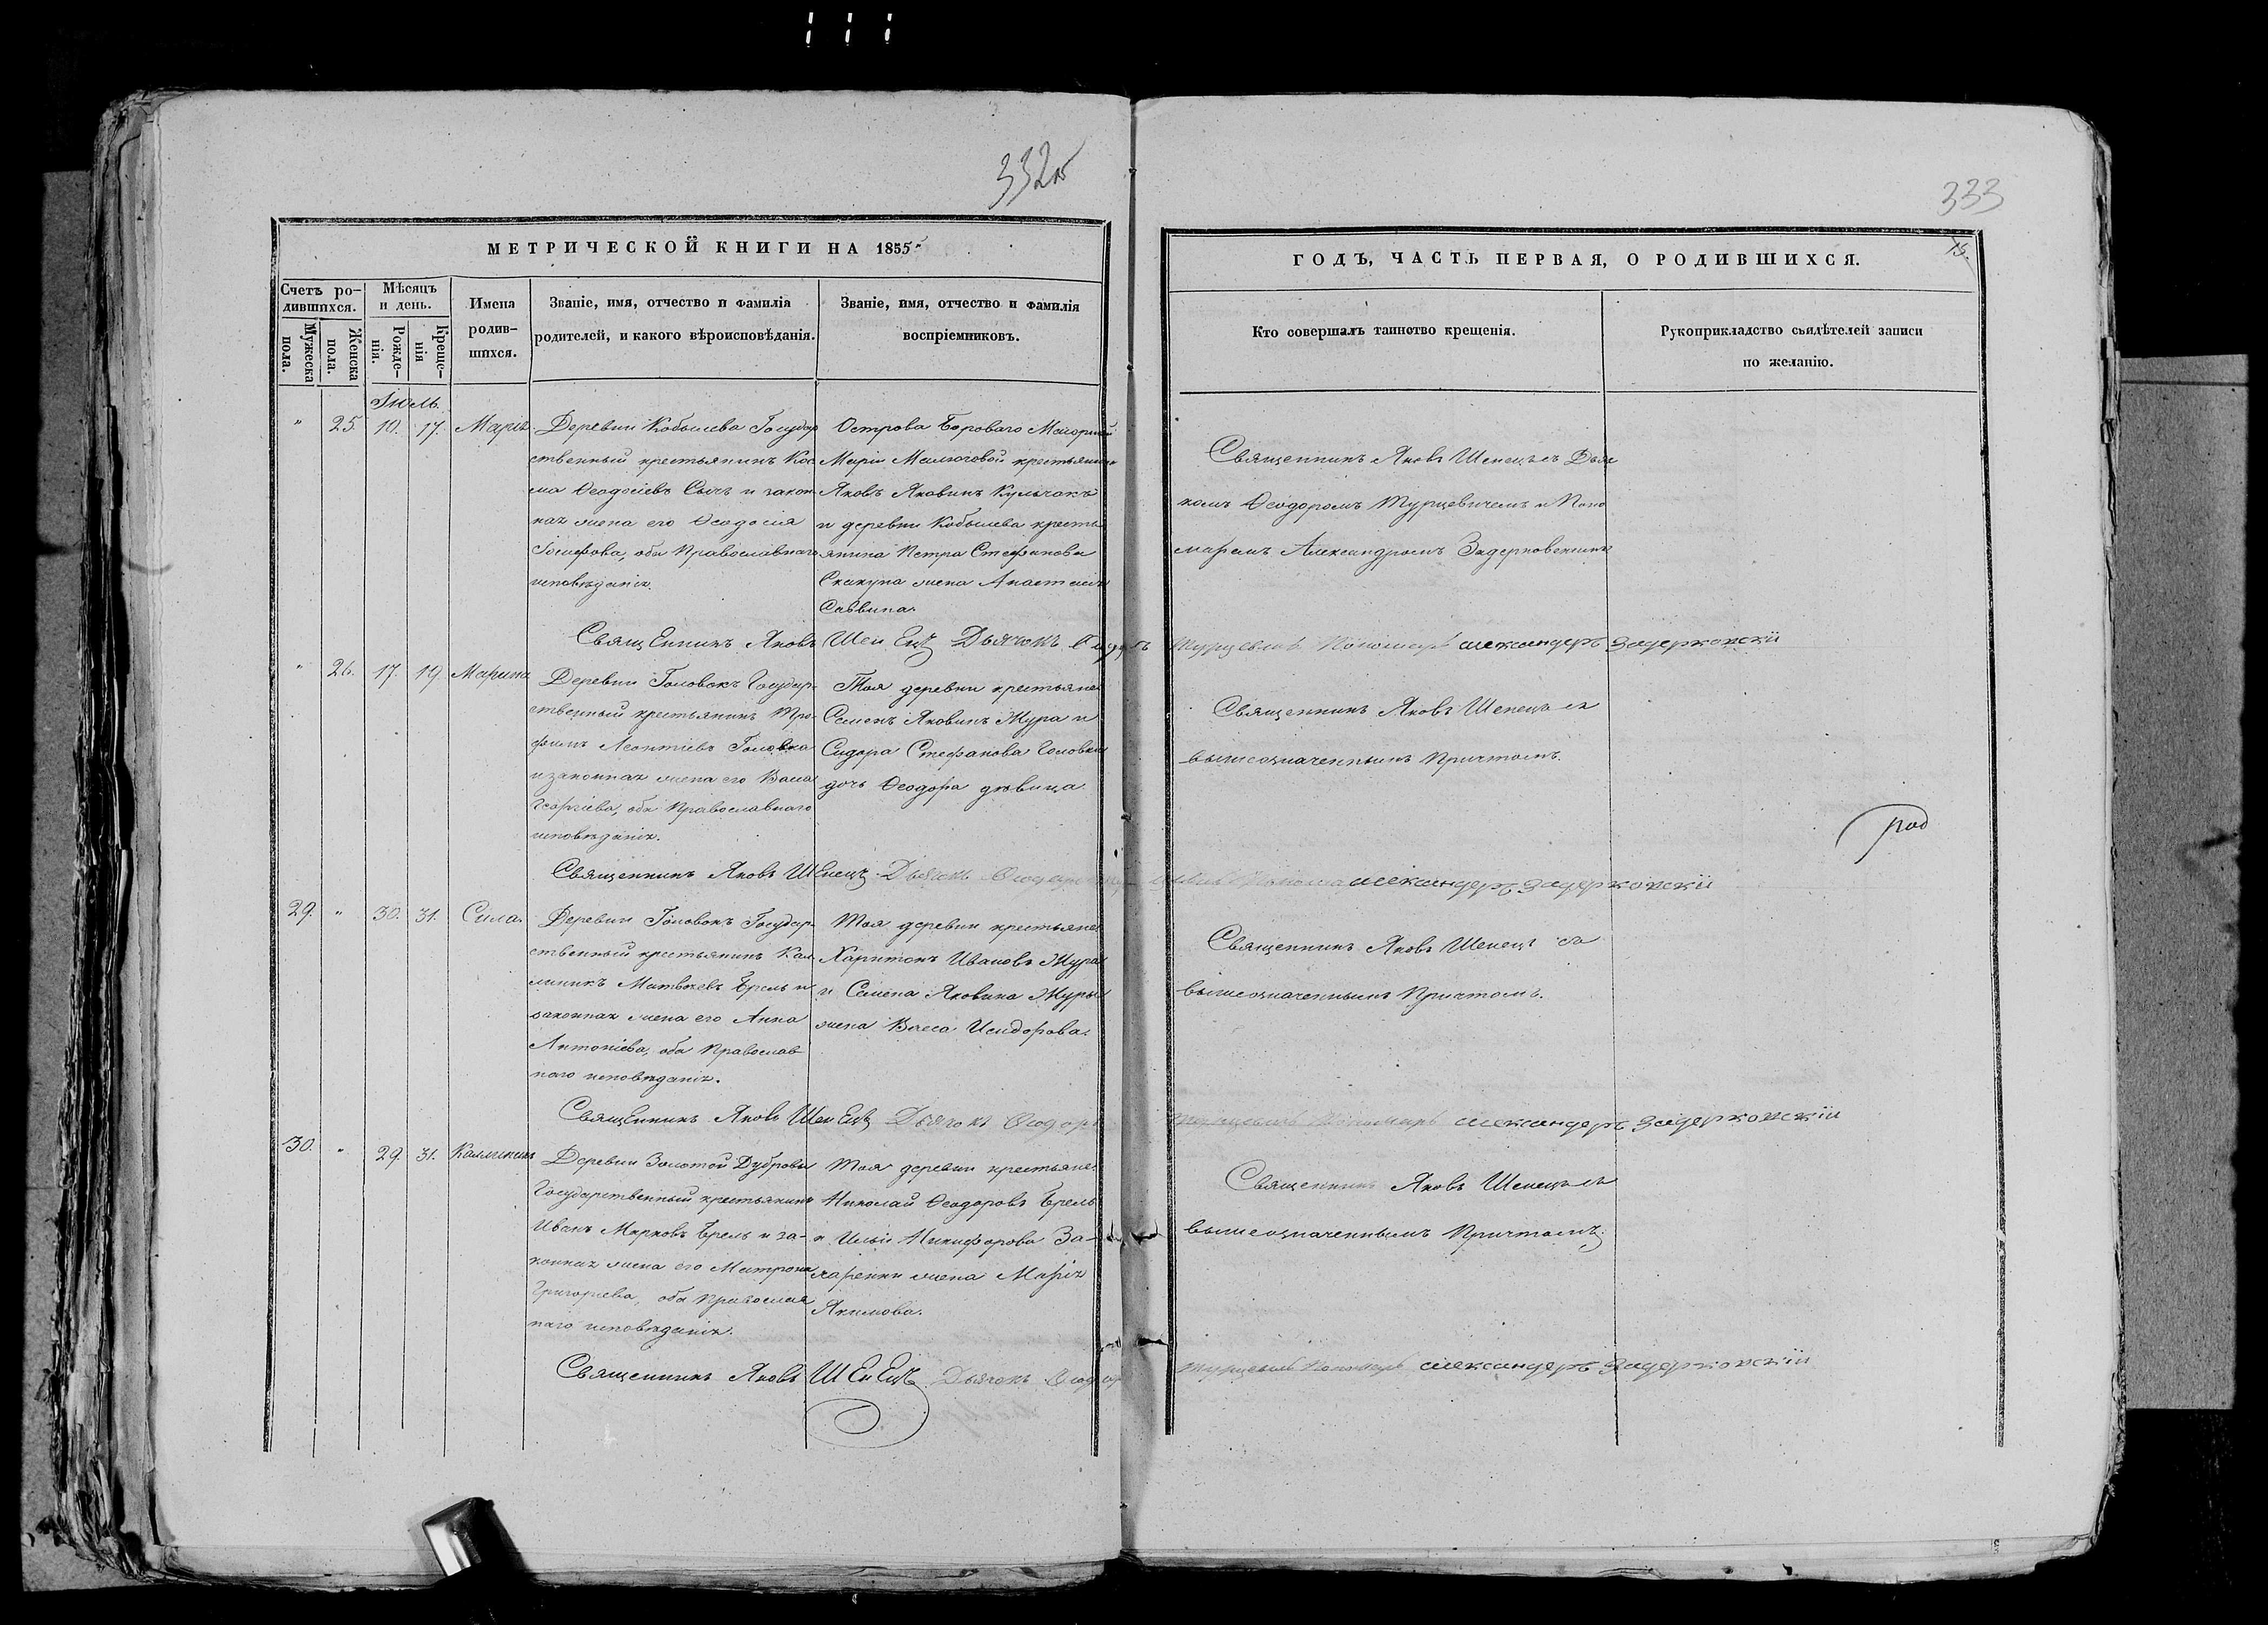 332об
333
15.
МЕТРИЧЕСКОЙ КНИГИ НА 1855
ГОДЪ, ЧАСТЬ ПЕРВАЯ, О РОДИВШИХСЯ.
Счетъ ро-
дившихся.
Мужеска
пола.
Женска
пола.
Мѣсяцъ
и день.
Рожде-
нія.
Креще-
нія
Имена
родив-
шихся.
Званіе, имя, отчество и фамилія
родителей, и какого вѣроисповѣданія.
Званіе, имя, отчество и фамилія
воспріемниковъ.
Кто совершалъ таинство крещенія.
Рукоприкладство свидѣтелей записи
по желанію.
Іюль.
" 25 10. 17. Марія
Деревни Кобылева Государ
ственный крестьянинъ Кос
ма Ѳеодосіевъ Сычъ и закон
ная жена его Ѳеодосія
Іосифова, оба Православнаго
исповѣданія.
Острова Бороваго
Маріи крестьянинъ
Яковъ Яковинъ Кульчокъ
и деревни Кобылева кресть
янина Петра Стефанова
Скакуна жена Анастасія
Саввина
Священникъ Яковъ Шепецъ съ Дьяч
комъ Ѳеодоромъ Турцевичемъ и Поно
маремъ Александромъ Задерковскимъ
Священникъ Яковъ Шепецъ Дьячокъ Ѳеодоръ Турцевичъ Пономарь александеръ Задерковскій
" 26. 17. 19 Марина
Деревни Головокъ Государ-
ственный крестьянинъ Тро-
фимъ Леонтіевъ Головка
и законная жена его Васса
Георгіева, оба Православнаго
исповѣданія.
Тоя деревни крестьяне
Семенъ Яковинъ Жура и
Сидора Стефанова Головки
дочь Ѳеодора дѣвица
Священникъ Яковъ Шепецъ съ
вышеозначеннымъ Причтомъ.
Священникъ Яковъ Шепецъ Дьячокъ Ѳеодоръ александеръ Задерковскій
29. " 30. 31. Сила
Деревни Головокъ Государ-
ственный крестьянинъ Кал-
линикъ Матвѣевъ Брель и
законная жена его Анна
Антоніева, оба Православ
наго исповѣданія.
Тоя деревни крестьяне
Харитонъ Ивановъ Жура
и Семена Яковина Журы
жена Васса Исидорова.
Священникъ Яковъ Шепецъ съ
вышеозначеннымъ Причтомъ.
Священникъ Яковъ Шепецъ Дьячокъ Ѳеодоръ Турцевичъ Пономарь александеръ Задерковскій
30. " 29. 31. Каллиникъ
Деревни Золотой Дубровы
Государственный крестьянинъ
Иванъ Марковъ Брель и за-
конная жена его Матрона
Григоріева, оба Православ
наго исповѣданія.
Тоя деревни крестьяне
Николай Ѳеодоровъ Брель
и Ильи Никифорова За-
харенки жена Марія
Якимова.
Священникъ Яковъ Шепецъ съ
вышеозначеннымъ Причтомъ
Священникъ Яковъ Шепецъ Дьячокъ Ѳеодоръ Турцевичъ Пономарь александеръ Задерковскій